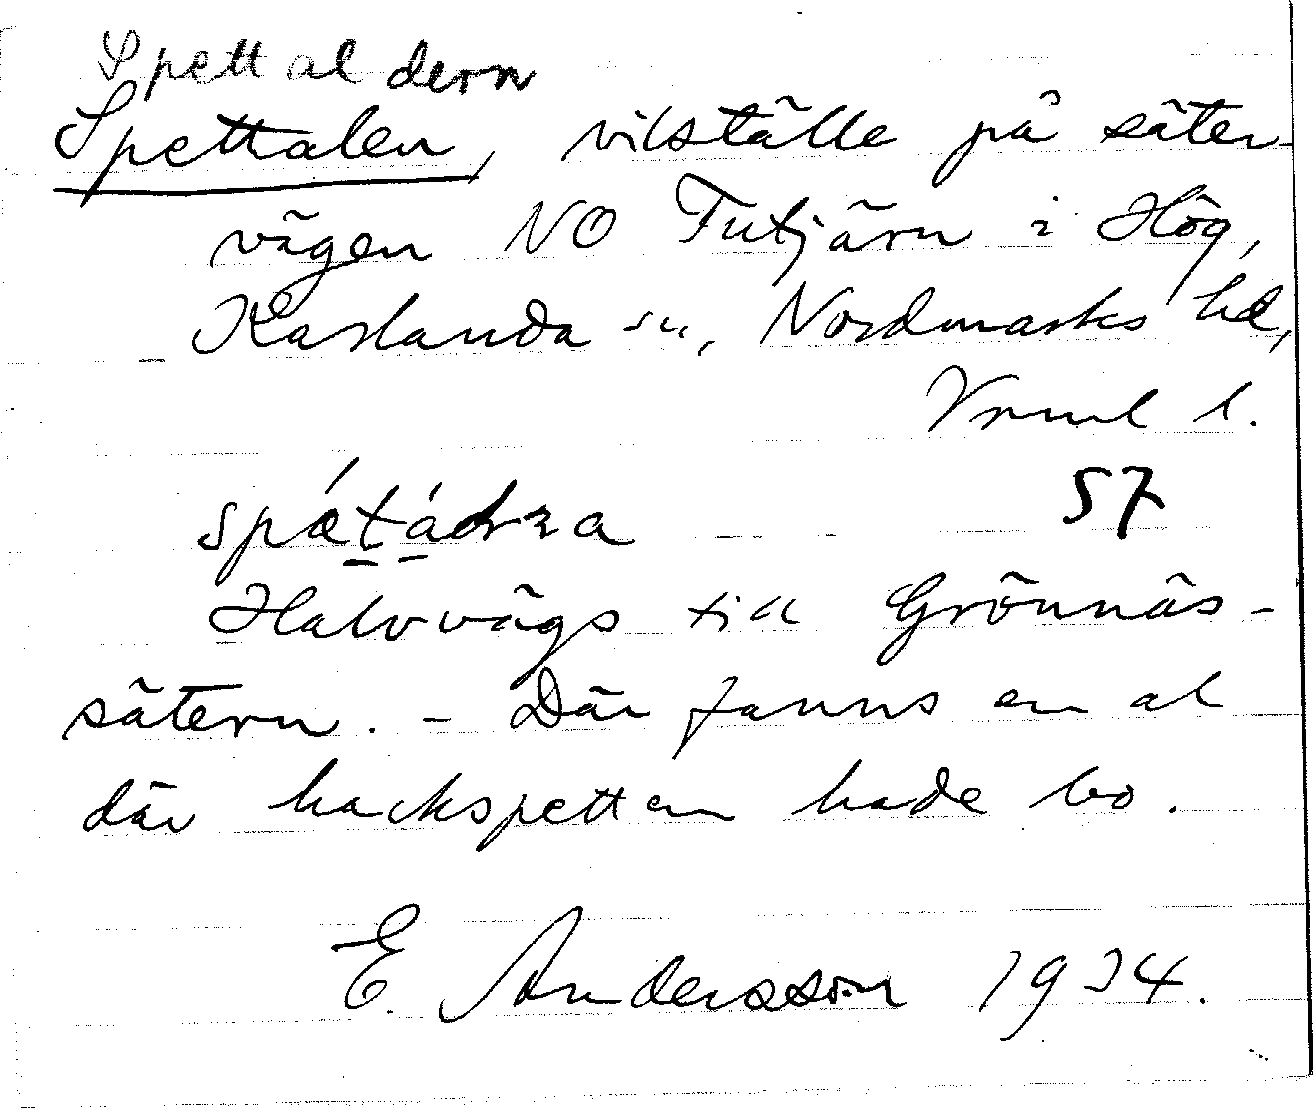 Spettaldern
Spettalen, vilställe på säter-
vägen NO Tutjärn i Hög,
Karlanda sn, Nordmarks hd,
Vrml l.
57
Halvvägs till Grönnäs-
sätern. - Där fanns en al
där hackspetten hade bo.
E. Andersson 1934.